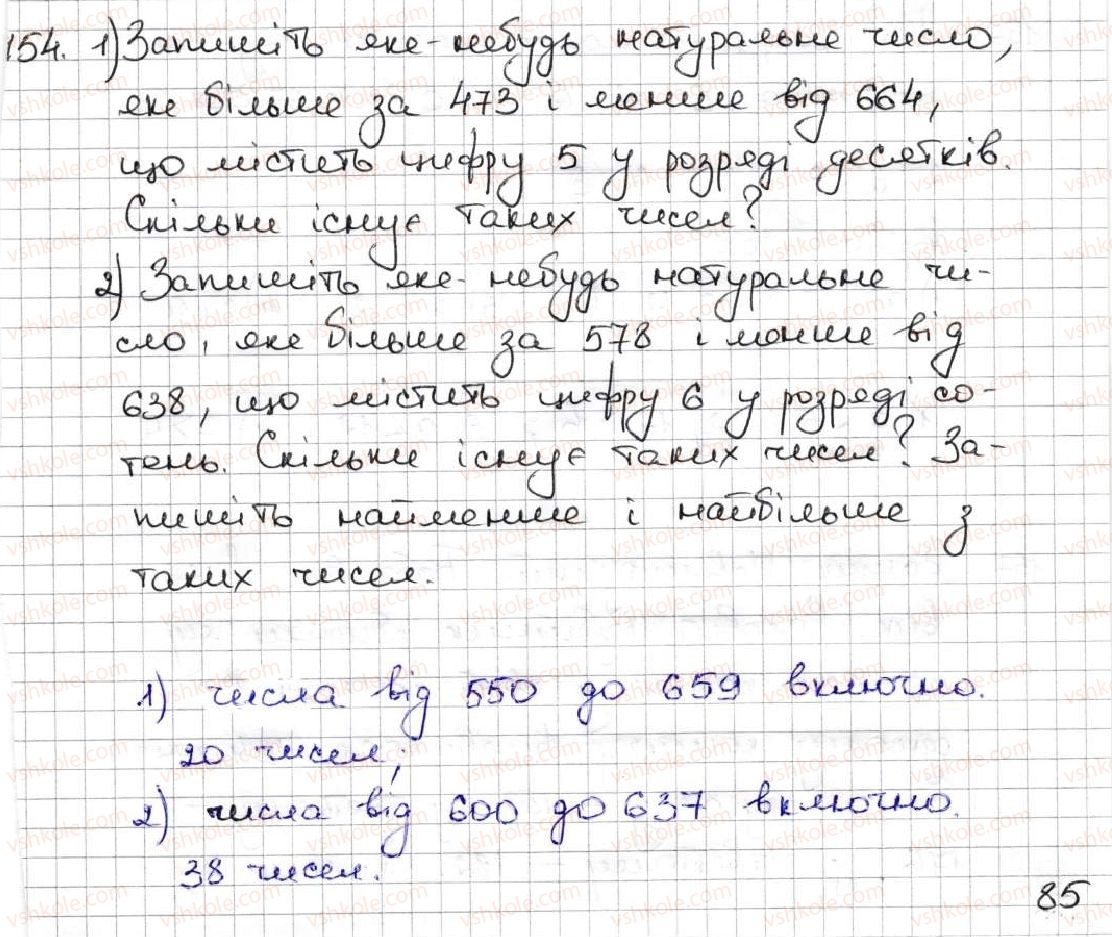 154. 1) Запишіть яке-небудь натуральне число,
яке більше за 473 і менше від 664,
що містить цифру 5 у розряді десятків.
Скільки існує таких чисел?
2) Запишіть яке-небудь натуральне чи-
сло, яке більше за 578 і менше від
638, що містить цифру 6 у розряді со-
тень. Скільки існує таких чисел? За-
пишіть найменше і найбільше з
таких чисел.
1) числа від 550 до 659 включно.
20 чисел;
2) числа від 600 до 637 включно.
38 чисел.
85